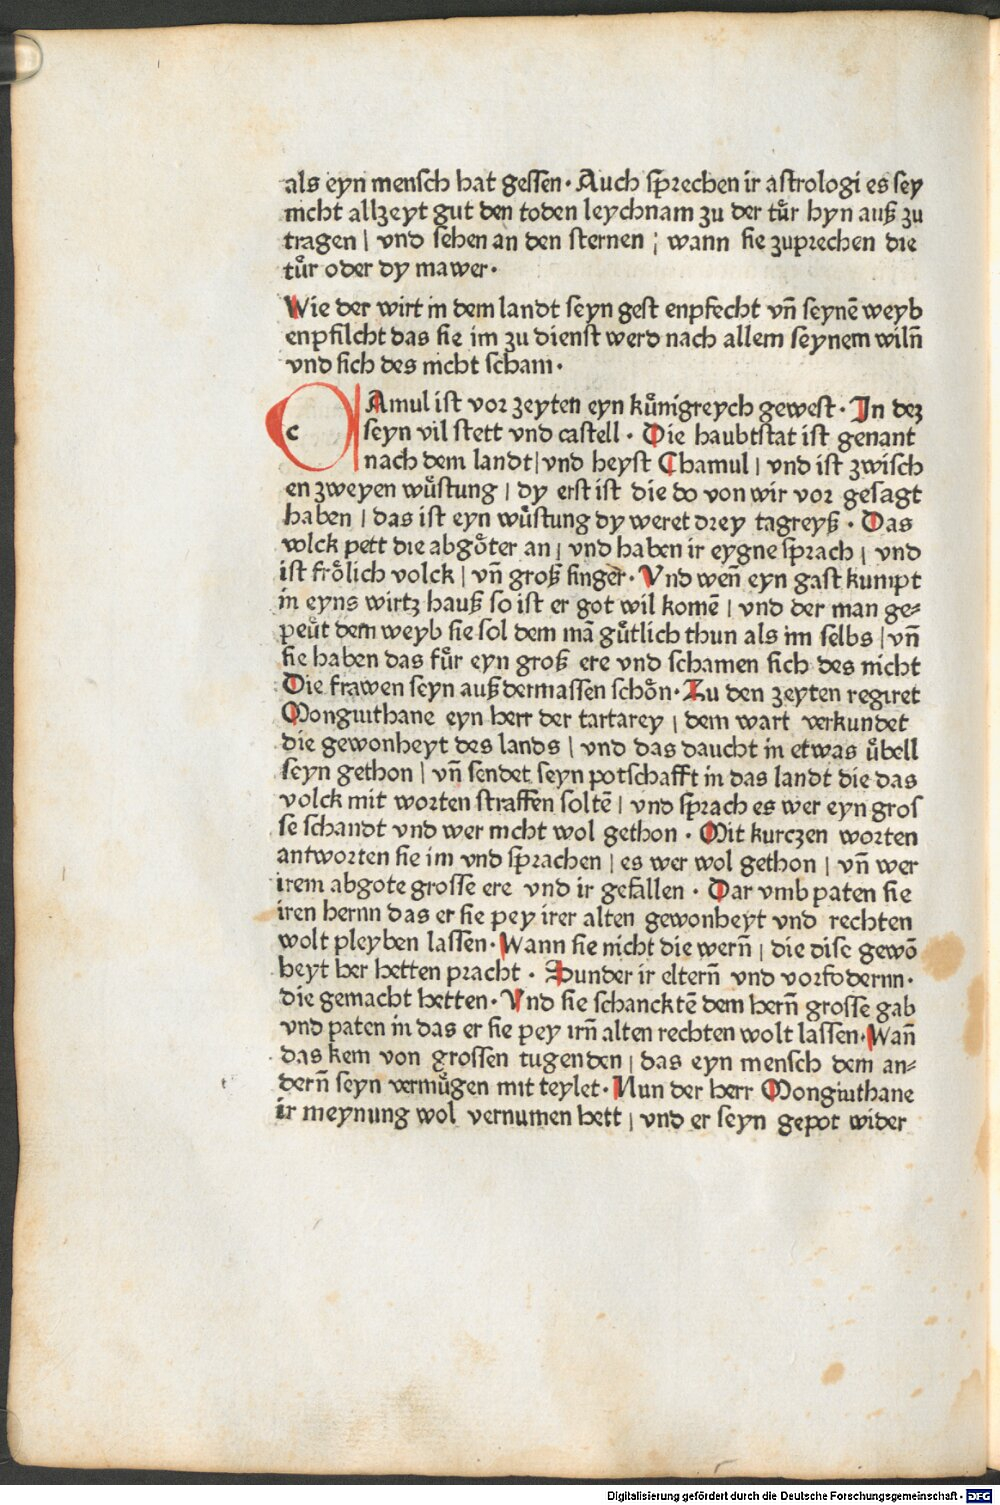 als eyn mensch hat gessen· Auch sprechen ir astrologi es sey
nicht allzeyt gut den toden leychnam zu der tuͤr hyn auß zu
tragen | vnd sehen an den sternen ; wann sie zuprechen die
tuͤr oder dy mawer·
Wie der wirt in dem landt seyn gest enpfecht vn̄ seynē weyb
enpfilcht das sie im zu dienst werd nach allem seynem wiln̄
vnd sich des nicht scham·
c Amul ist vor zeyten eyn kuͤnigreych gewest· In dez
seyn vil stett vnd castell · Die haubtstat ist genant
nach dem landt|vnd heyst Chamul | vnd ist zwisch
en zweyen wuͤstung | dy erst ist die do von wir vor gesagt
haben | das ist eyn wuͤstung dy weret drey tagreyß · Das
volck pett die abgoͤter an | vnd haben ir eygne sprach | vnd
ist froͤlich volck | vn̄ groß singer· Vnd wen̄ eyn gast kumpt
in eyns wirtz hauß so ist er got wil komē | vnd der man ge⸗
peuͤt dem weyb sie sol dem mā guͤtlich thun als im selbs | vn̄
sie haben das fuͤr eyn groß ere vnd schamen sich des nicht
Die frawen seyn auß dermassen schoͤn· Zu den zeyten regiret
Monguithane eyn herr der tartarey | dem wart verkundet
die gewonheyt des lands | vnd das daucht in etwas uͤbell
seyn gethon | vn̄ sendet seyn potschafft in das landt die das
volck mit worten straffen soltē | vnd sprach es wer eyn gros
se schandt vnd wer nicht wol gethon · Mit kurczen worten
antworten sie im vnd sprachen | es wer wol gethon | vn̄ wer
irem abgote grosse ere vnd ir gefallen · Dar vmb paten sie
iren hernn das er sie pey irer alten gewonheyt vnd rechten
wolt pleyben lassen· Wann sie nicht die wern̄ | die dise gewō
heyt her hetten pracht · Sunder ir eltern̄ vnd vorfodernn·
die gemacht hetten· Vnd sie schancktē dem hern̄ grosse gab
vnd paten in das er sie pey irn̄ alten rechten wolt lassen· Wan̄
das kem von grossen tugenden | das eyn mensch dem an⸗
dern̄ seyn vermuͤgen mit teylet· Nun der herr Monguithane
ir meynung wol vernumen hett | vnd er seyn gepot wider
Digitalisierung gefördert durch die Deutsche Forschungsgemeinschaft - DFG